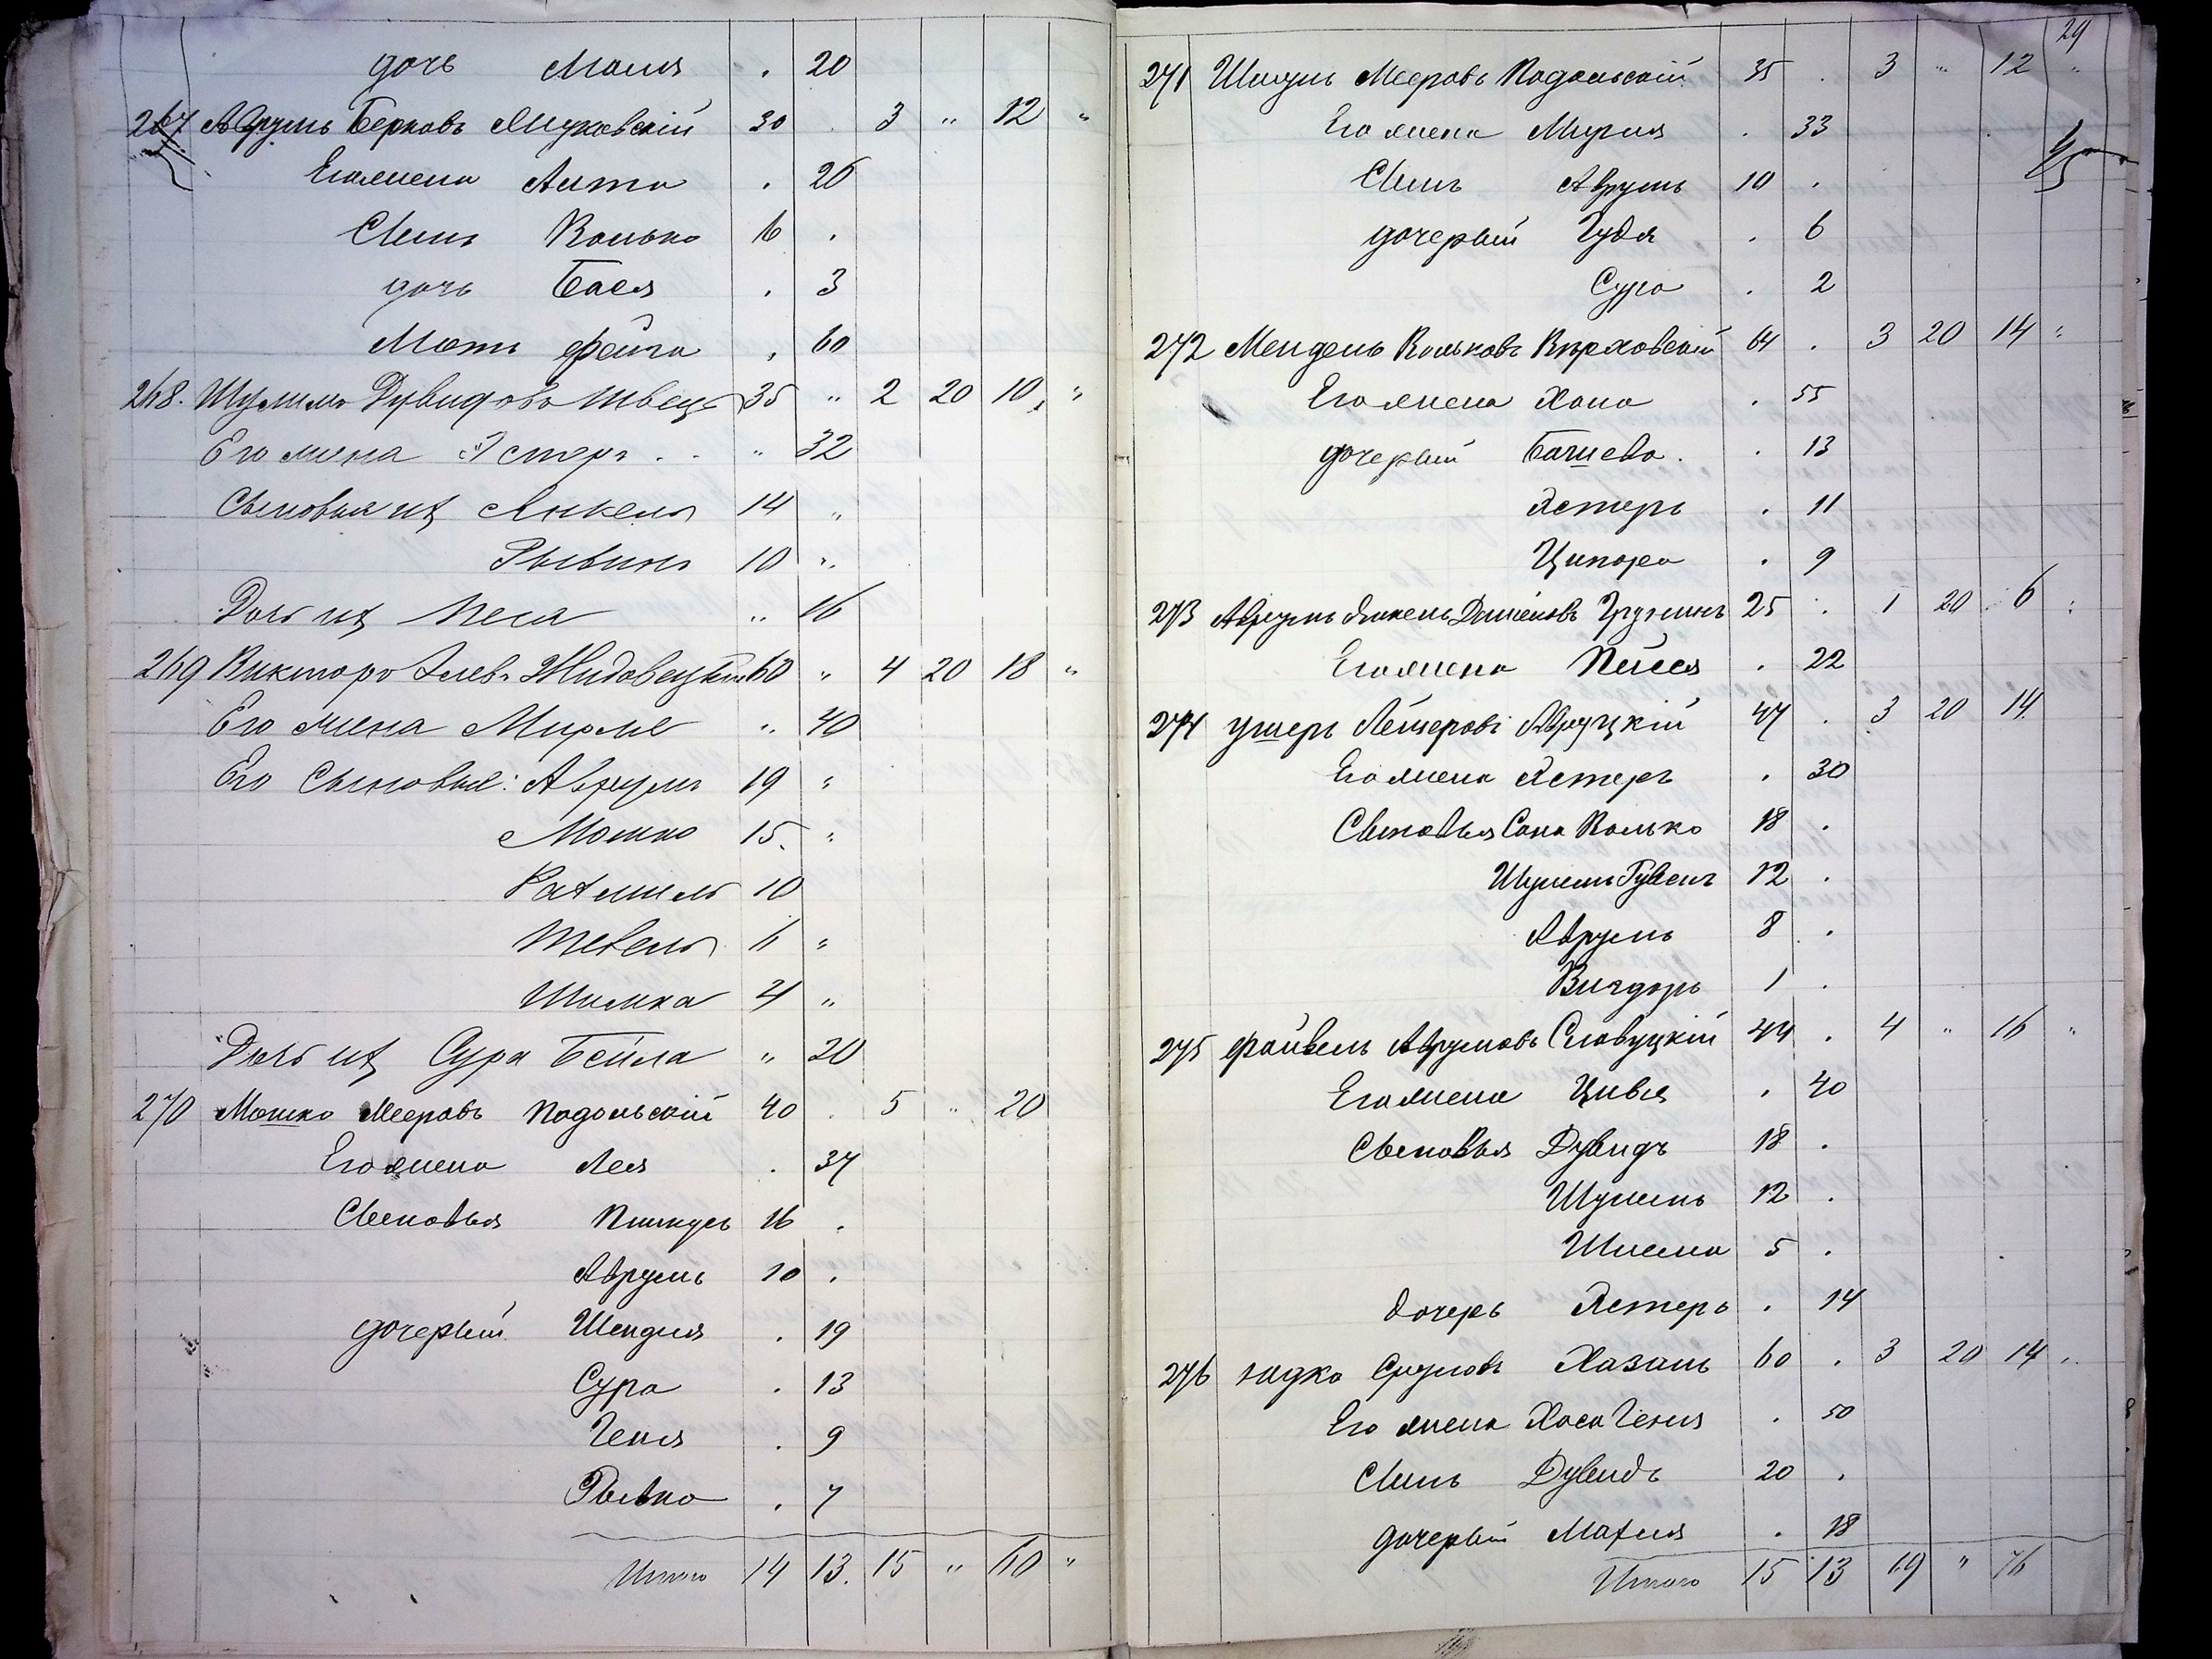 дочь Маля . 20
267 Аврумъ Берковъ Жуковскій 30 . 3 " 12 "
Его жена Антя . 26
Сынъ Волько 16 .
дочь Бася . 3
Мать Фейга . 60
268. Шулимъ Дувидовъ Швецъ 35 " 2 20 10 "
Его жена Эстеръ . . " 32
Сыновья ихъ Янкель 14 "
Рывинъ 10 "
Дочь ихъ Песя " 16
269 Викторъ Жидовецкій 60 " 4 20 18 "
Его жена Мирле " 40
Его Сыновья: Аврумъ 19 "
Мошко 15 "
Рахмиль 10
Тевель 6 "
Шимка 4 "
Дочь ихъ Сура Бейла " 20
270 Мошко Мееровъ Подольскій 40 . 5 " 20
Его жена Лея . 37
Сыновья Пинкусъ 16 .
Аврумъ 10 .
дочерьи Шендля . 19
Сура . 13
Геня . 9
Рывка . 7
Итого 14 13. 15 " 60 "
29
271 Шмуль Мееровъ Подольскій 35 . 3 " 12 "
Его жена Мирля . 33
Сынъ Аврумъ 10 .
дочерьи Гудя . 6
Сура . 2
272 Мендель Вольковъ 64 . 3 20 14 "
Его жена Хана . 55
дочерьи Башева . 13
Эстеръ . 11
Ципора . 9
273 Аврумъ Янкель 25 . 1 20 6 "
Его жена Песя . 22
274 Ушеръ Лейзеровъ Авруцкій 47 . 3 20 14
Его жена Эстеръ . 30
Сыновья Сана Волько 18 .
Шулимъ Рувенъ 12 .
Аврумъ 8 .
Вигдоръ 1 .
275 Файвель Аврумовъ Славуцкій 44 . 4 " 16 "
Его жена Цивья . 40
Сыновья Дувидъ 18 .
Шулимъ 12 .
Шлема 5 .
дочерь Эстеръ . 14
276 Юдко Сруловъ Хазанъ 60 . 3 20 14 "
Его жена Хася Геня . 50
Сынъ Дувидъ 20 .
дочерьи Махля . 18
Итого 15 13 19 " 76